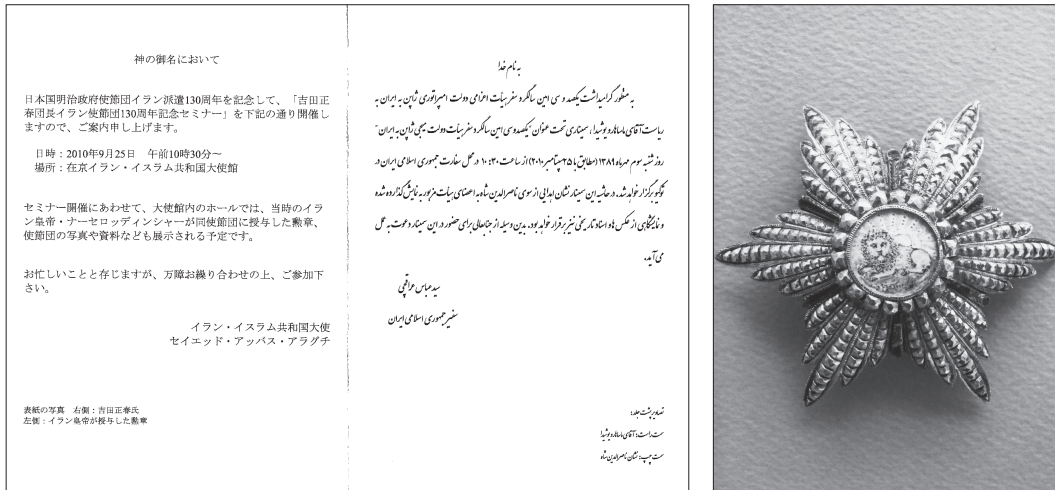 神の御名において
日本国明治政府使節団イラン派遣130周年を記念して、「吉田正
春団長イラン使節団130周年記念セミナー」を下記の通り開催し
ますので、ご案内申し上げます。
日時：2010年9月25日　午前10時30分～
場所：在京イラン・イスラム共和国大使館
セミナー開催にあわせて、大使館内のホールでは、当時のイラ
ン皇帝・ナーセロッディンシャーが同使節団に授与した勲章、
使節団の写真や資料なども展示される予定です。
お忙しいことと存じますが、万障お繰り合わせの上、ご参加下
さい。
イラン・イスラム共和国大使
セイエッド・アッバス・アラグチ
表紙の写真　右側：吉田正春氏
左側：イラン皇帝が授与した勲章
به نام خدا
به منظور گرامیداشت یکصد و سی امین سالگرد سفر هیأت اعزامی دولت امپراتوری ژاپن به ایران به
ریاست آقای ماساهارو یوشیدا، سمیناری تحت عنوان "یکصد و سی امین سالگرد سفر هیأت دولت میجی ژاپن به ایران"
روز شنبه سوم مهرماه ۱۳۸۹ (مطابق با ۲۵ سپتامبر ۲۰۱۰) از ساعت ۱۰:۳۰ در محل سفارت جمهوری اسلامی ایران در
توکیو برگزار خواهد شد. در حاشیه این سمینار نشان اهدایی از سوی ناصرالدین شاه به اعضای هیأت مزبور به نمایش گذارده شده
و نمایشگاهی از عکس ها و اسناد تاریخی نیز برقرار خواهد بود. بدین وسیله از جنابعالی برای حضور در این سمینار دعوت به عمل
می آید.
سید عباس عراقچی
سفیر جمهوری اسلامی ایران
تصاویر پشت جلد:
سمت راست: آقای ماساهارو یوشیدا
سمت چپ: نشان ناصرالدین شاه